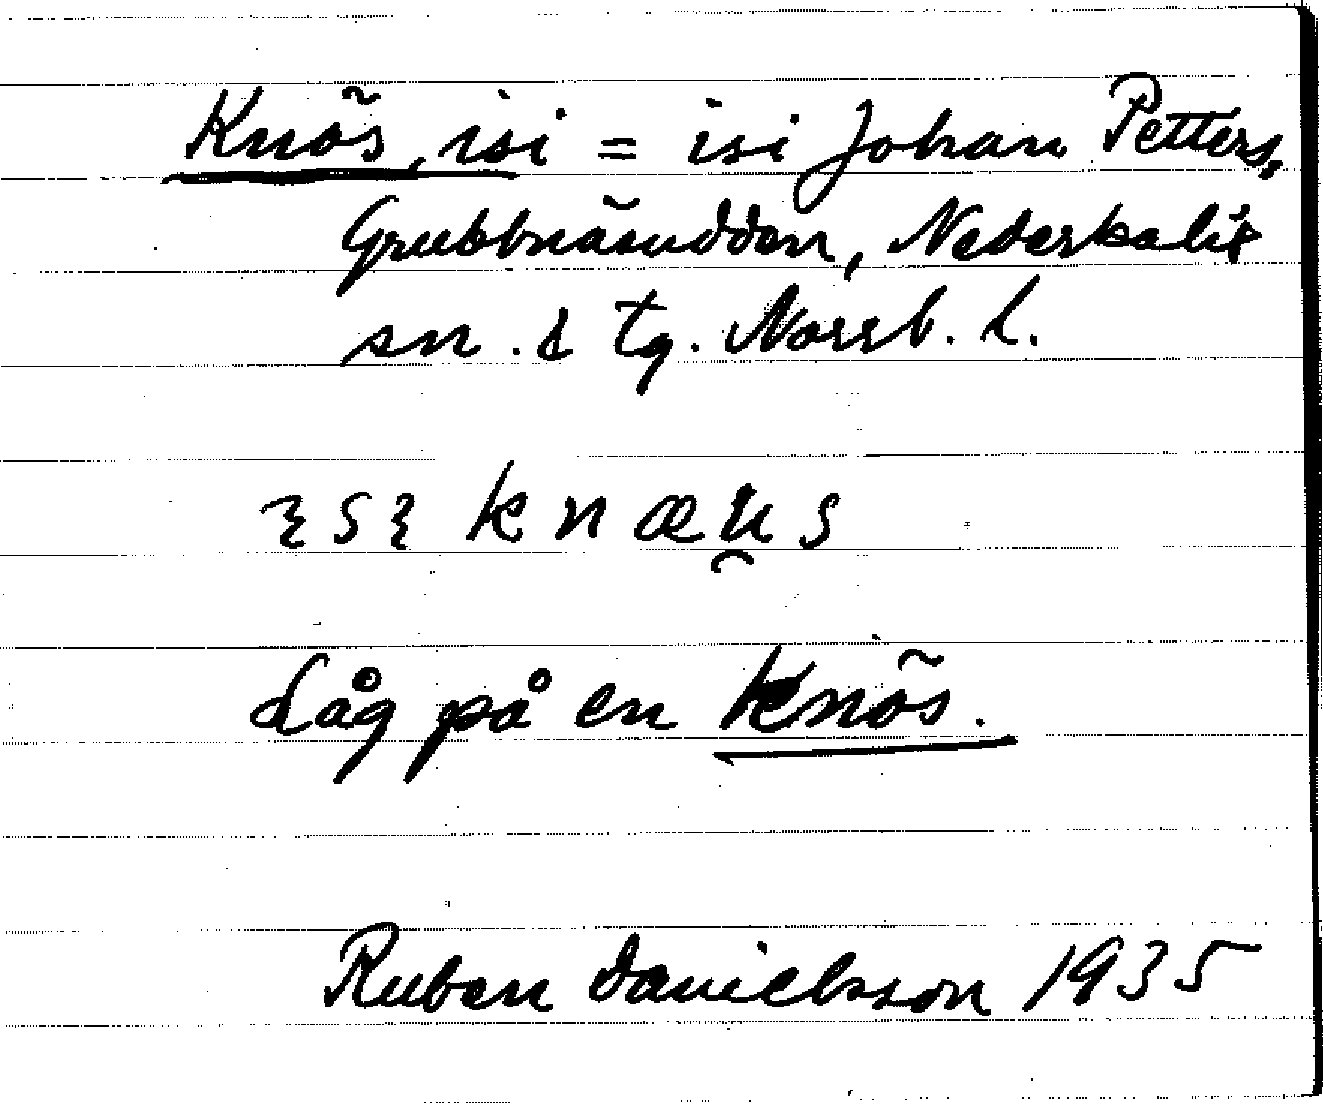 Knös, isi = isi Johan Petters,
Grubbnäsudden, Nederkalix
sn. o tg. Norrb. l.
ꝫsꝫ knæu̯s
Låg på en Knös.
Ruben Danielsson 1935